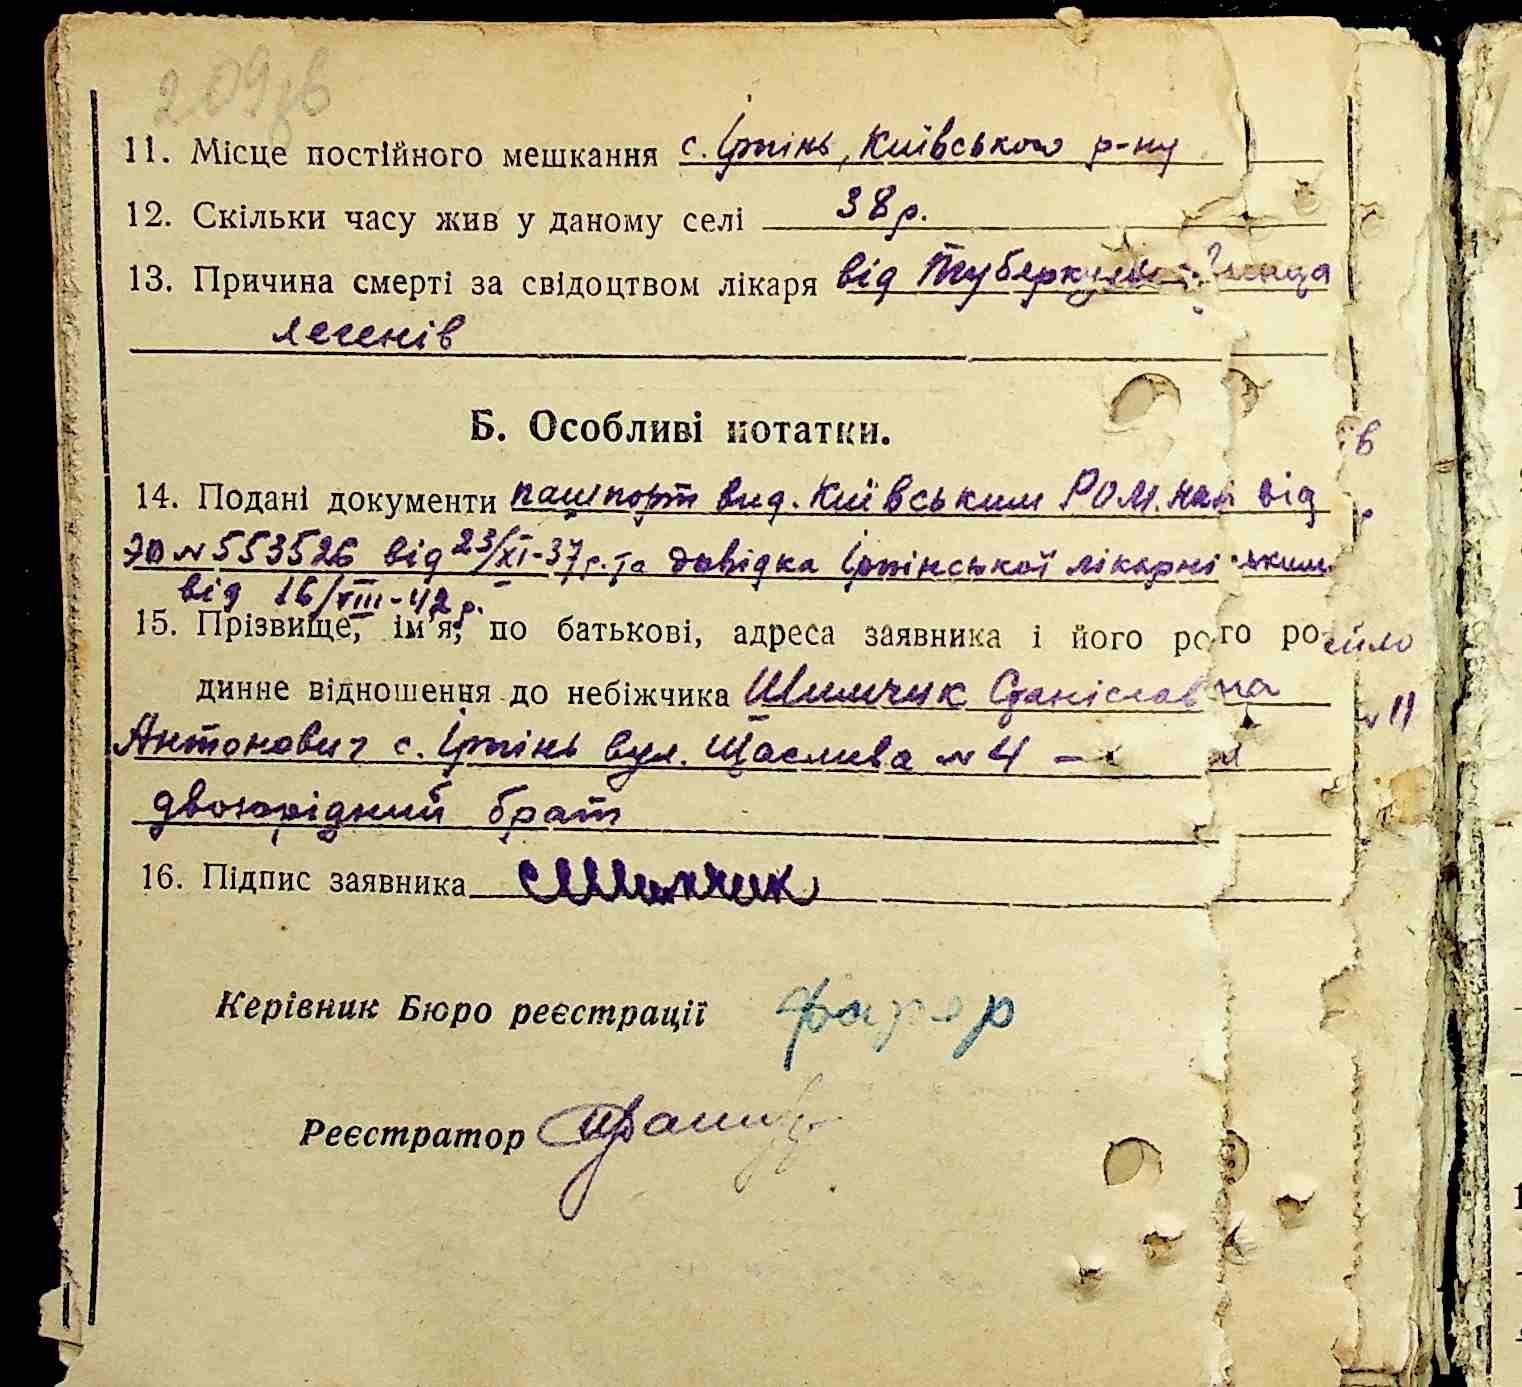 209зв
11. Місце постійного мешкання с. Ірпінь, Київського р-ну
12. Скільки часу жив у даному селі 38 р.
13. Причина смерті за свідоцтвом лікаря від
легенів
Б. Особливі нотатки.
14. Подані документи пашпорт вид. Київським РОМ. від
№ 553526 від 23/XI-37 р. та довідка Ірпінської лікарні
від 16/VIII-42 р.
15. Прізвище, ім'я, по батькові, адреса заявника і його
динне відношення до небіжчика Шимчик Станіслав
Антонович с. Ірпінь вул. Щаслива № 4 –
двоюрідний брат
16. Підпис заявника СШимчик
Керівник Бюро реєстрації
Реєстратор